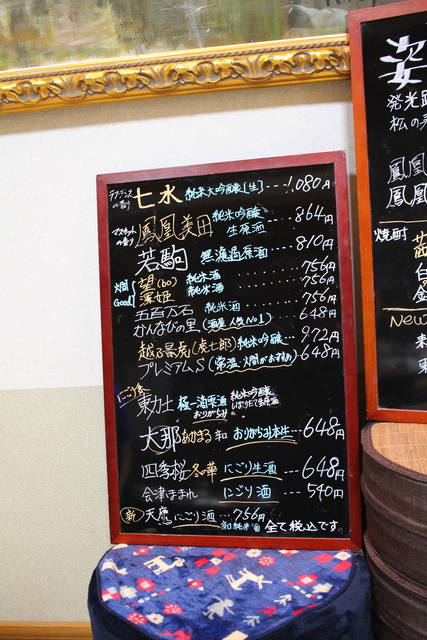 七水 純米大吟醸[生] ---1,080円
マスカットの香り 鳳凰美田 純米吟醸 生原酒 ...864円
若駒 無濾過原酒 ...810円
燗Good! 望(bo) 純米酒 ......756円
澤姫 純米酒 ......756円
五百万石 純米酒 ....756円
かんなびの里 (酒屋人気No1) ...648円
越乃景虎(虎七郎) 純米吟醸...972円
プレミアムS (常温・燗がおすすめ) 648円
東力士 極一滴雫酒 純米吟醸
おりがらみ しぼりたて生原酒
大那 あかまる 辛口 おりがらみ本生...648円
四季桜 冬の華 にごり生酒 ...648円
会津ほまれ にごり酒 .... 540円
新 天鷹 にごり酒 ...756円
純米酒 全て税込です。
姿
発光
松の
鳳凰
鳳凰
焼酎
New